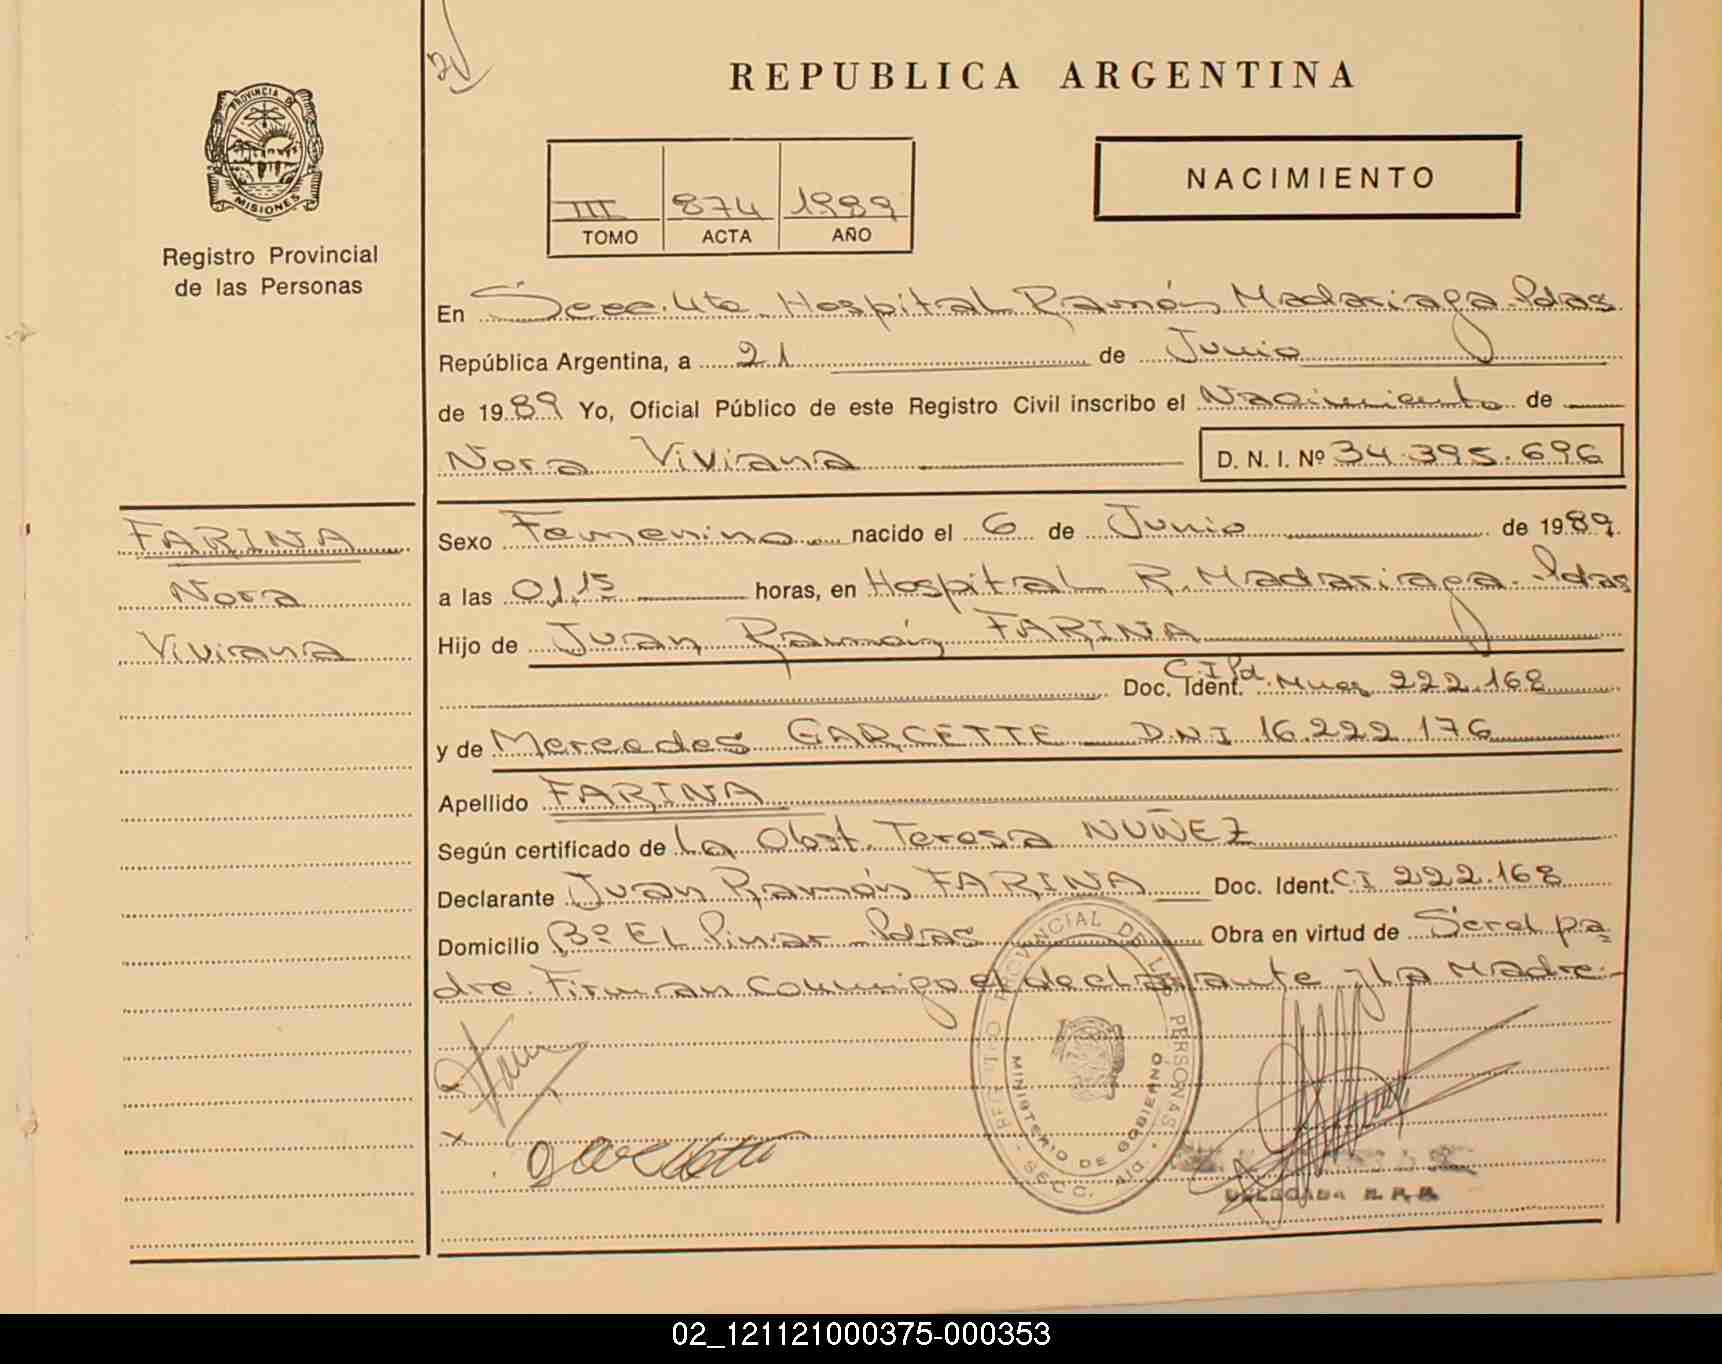 REPUBLICA ARGENTINA
PROVINCIA DE
MISIONES
Registro Provincial
de las Personas
NACIMIENTO
III 874 1989
TOMO ACTA AÑO
En Secc. 4ta. Hospital Ramón Madariaga. Pdas.
República Argentina, a 21 de Junio
de 1989 Yo, Oficial Público de este Registro Civil inscribo el Nacimiento de
Nora Viviana D. N. I. Nº 34.395.696
FARINA
Nora
Viviana
Sexo Femenino. nacido el 6 de Junio de 1989.
a las 01,15 horas, en Hospital R. Madariaga. Pdas
Hijo de Juan Ramón FARINA
Doc. Ident. C.I. Pol. Mnes 222.168
y de Mercedes GARCETTE DNI 16.222.176
Apellido FARINA
Según certificado de La Obst. Teresa NUÑEZ
Declarante Juan Ramón FARINA Doc. Ident. CI 222.168
Domicilio Bº El Pinar Pdas Obra en virtud de Ser el pa
dre. Firman conmigo el declarante y la Madre.-
REGISTRO PROVINCIAL DE LAS PERSONAS
MINISTERIO DE GOBIERNO
SECC. 4ta
DELEGADA R. P. P.
02_121121000375-000353